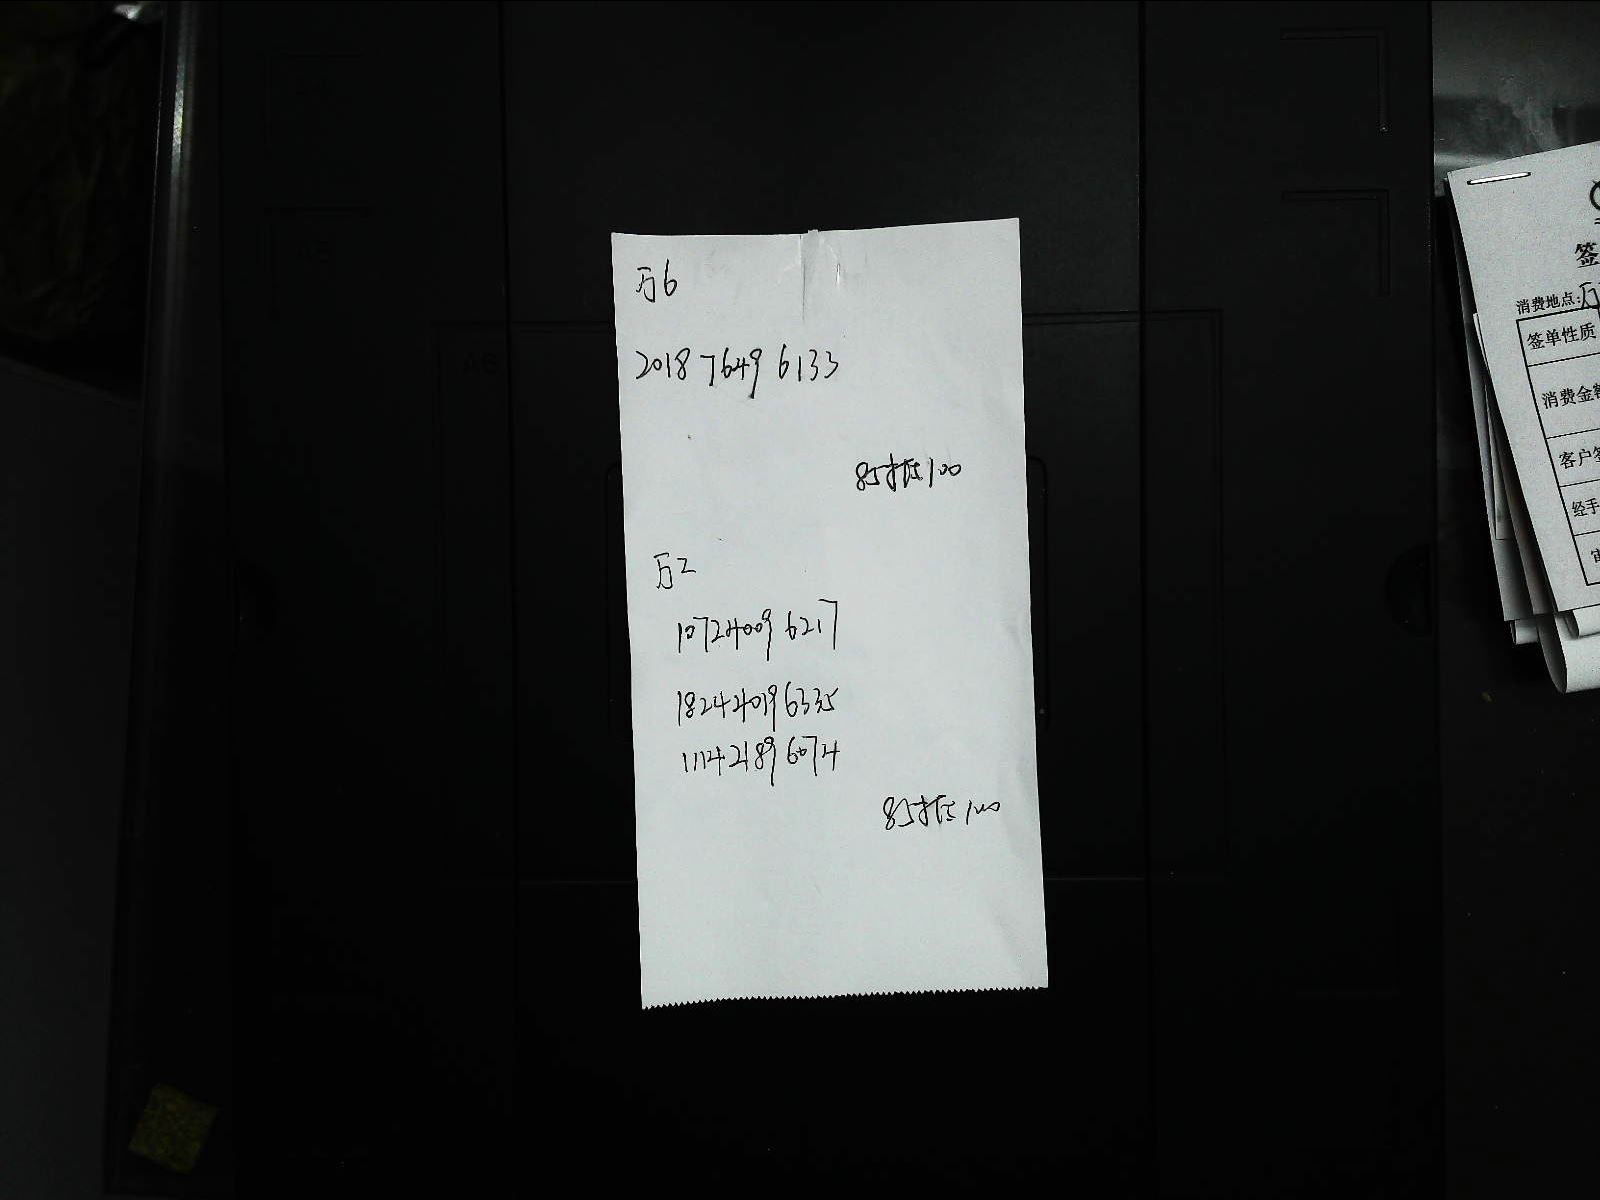 万6
2018 7649 6133
85抵100
万2
10724009 6217
182424019 6335
11142189 6074
85抵100
签
消费地点:万
签单性质
消费金额
客户签
经手